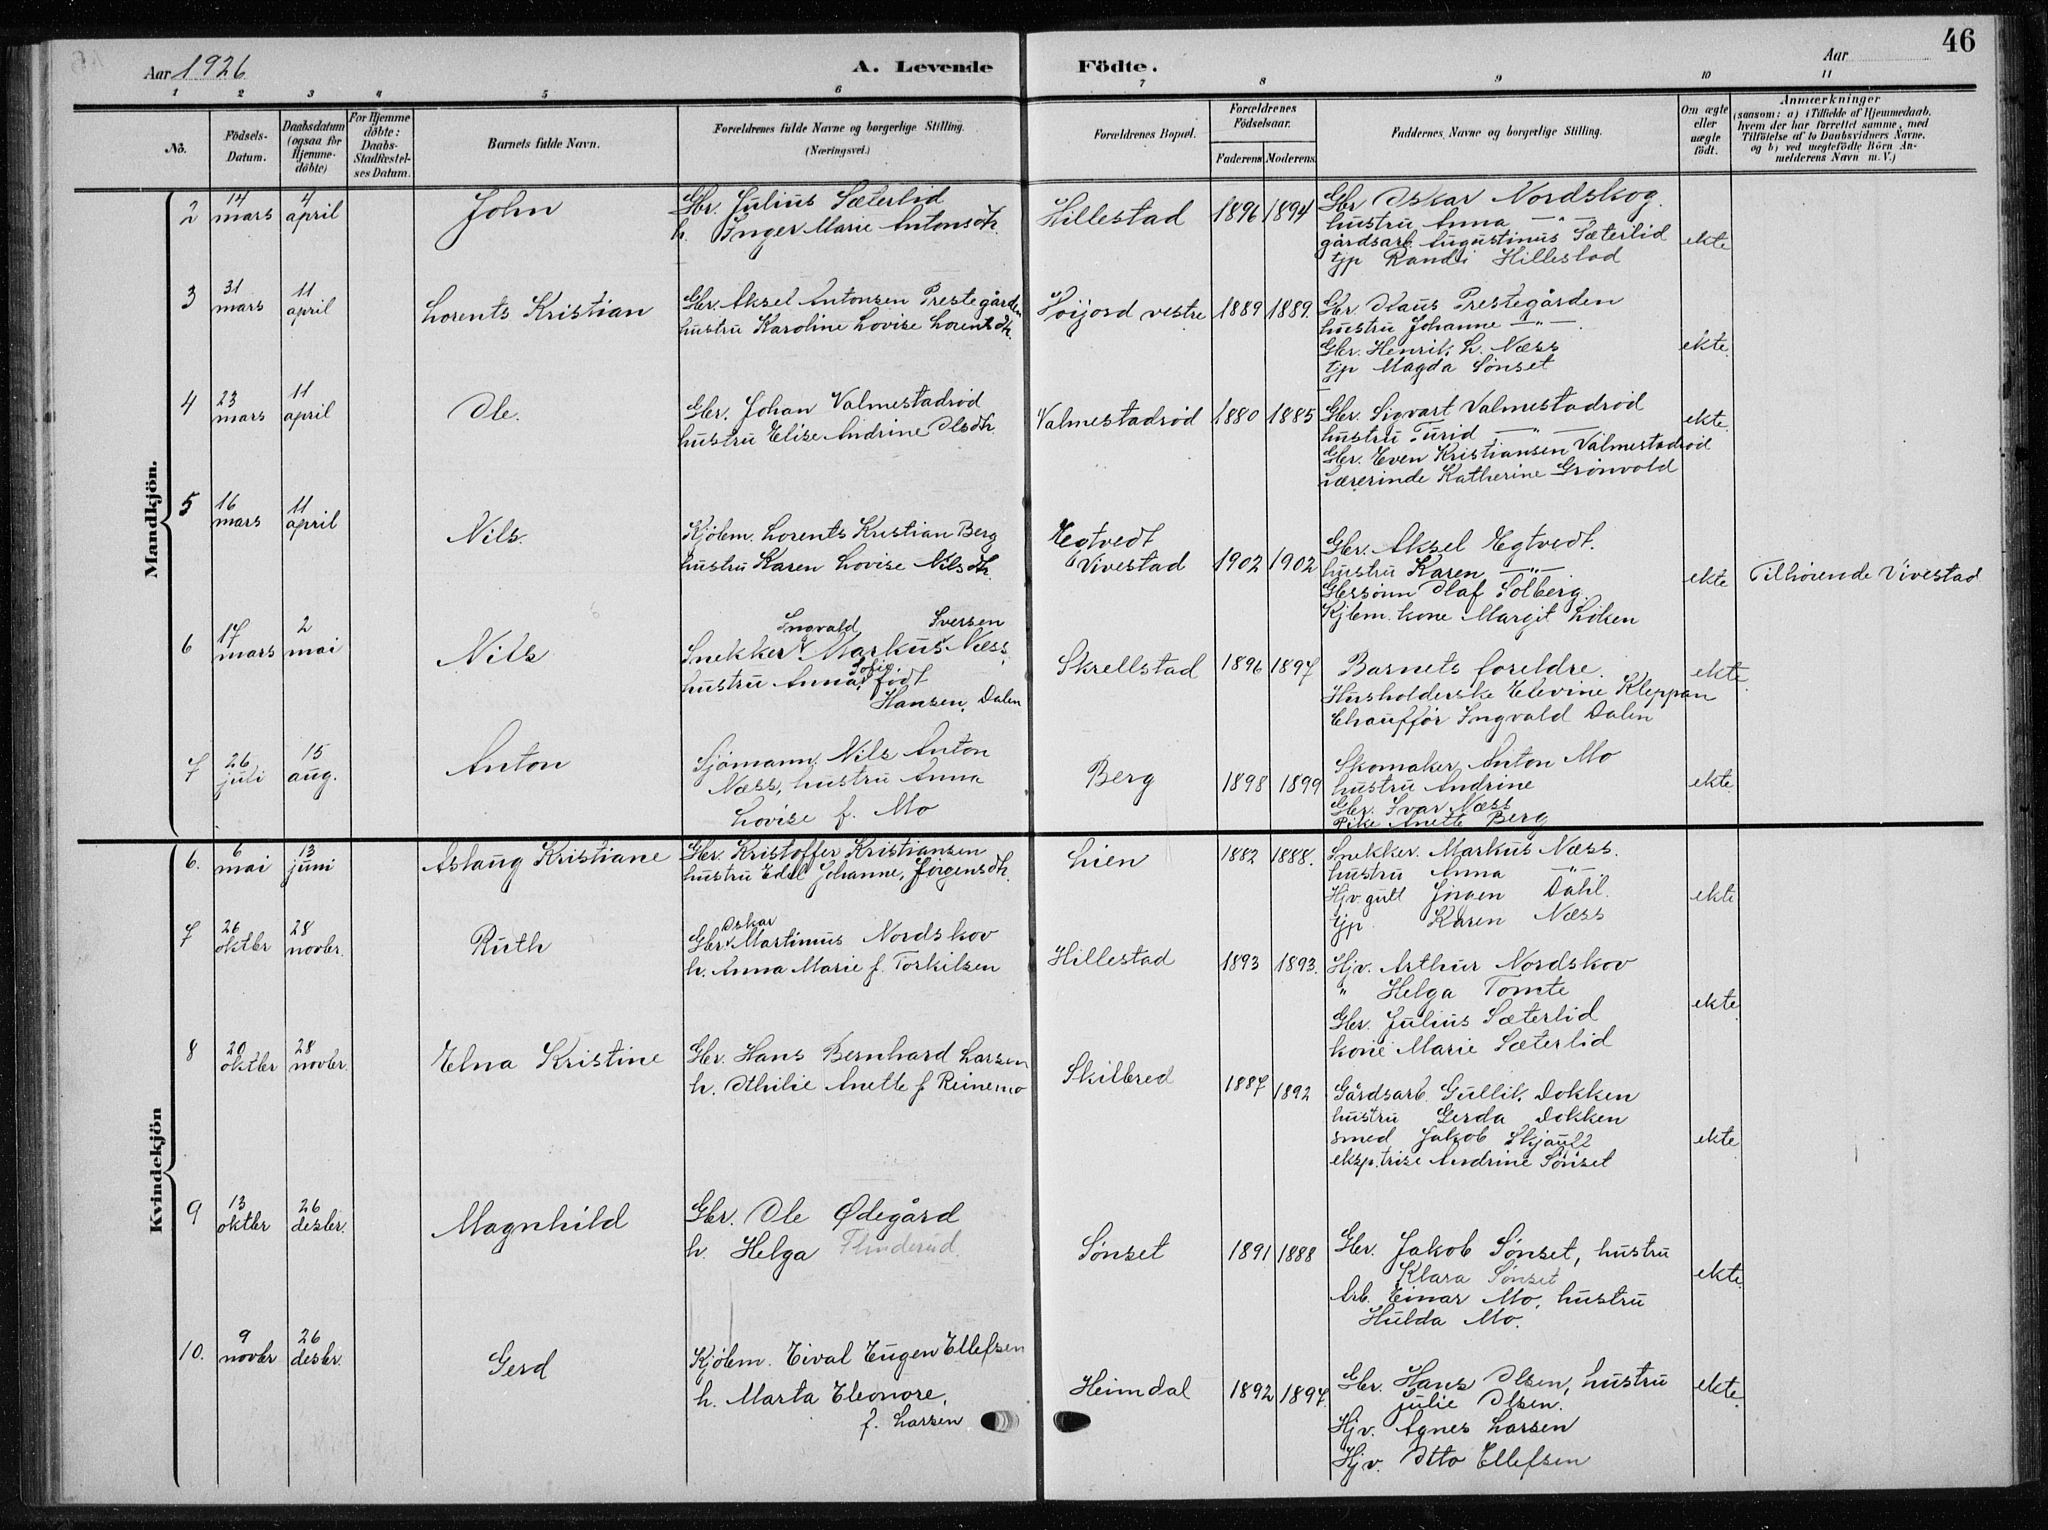 46
Aar 1926
A. Levende Födte.
Aar
1 2 3 4 5 6 7 8 9 10 11
No.
Födsels-Datum.
Daabsdatum (ogsaa for Hjemme-döbte)
For Hjemme döbte: Daabs-Stadfæstel-ses Datum.
Barnets fulde Navn.
Forældrenes fulde Navne og borgerlige Stilling.
(Næringsvei.)
Forældrenes Bopæl.
Forældrenes Födselsaar.
Faderens Moderens
Faddernes Navne og borgerlige Stilling.
Om ægte eller uægte födt.
Anmærkninger
(saasom: a) i Tilfælde af Hjemmedaab,
hvem der har forrettet samme, med
Tilföielse af to Daabsvidners Navne,
og b) ved uægtefödte Börn An-
melderens Navn m. V.)
Mandkjön.
2 14 mars 4 april John
Gbr. Julius Sæterlid
h. Inger Marie Antonsdtr.
Hillestad 1896 1894
Gbr Oskar Nordskog.
hustru Anna —"—
gårdsarb. Augustinus Sæterlid
tjp Randi Hillestad
ekte
3 31 mars 11 april Lorents Kristian
Gbr. Aksel Antonsen Prestegården
hustru Karoline Lovise Lorentsdtr.
Høijord vestre 1889 1889.
Gbr. Klaus Prestegården
hustru Johanne —"—
Gbr. Henrik L. Næss
tjp Magda Sønset
ekte.
4 23 mars 11 april Ole.
Gbr. Johan Valmestadrød
hustru Elise Andrine Olsdtr
Valmestadrød 1880 1885
Gbr. Sigvart Valmestadrød
hustru Turid —"—
Gbr. Even Kristiansen Valmestadrød
Lærerinde Katherine Grønvold
ekte.
5 16 mars 11 april Nils.
Kjøbm. Lorents Kristian Berg
hustru Karen Lovise Nilsdtr.
Hegtvedt
Vivestad 1902 1902
Gbr. Aksel Hegtvedt.
hustru Karen —"—.
Gbrsønn Olaf Solberg.
Kjbm. kone Margit Løken
ekte
Tilhørende Vivestad
6 17 mars 2 mai Nils
Ingvald Iversen
Snekker Markus Næss.
Sofie
hustru Anna født
Hansen, Dalen
Skrellstad 1896 1897
Barnets foreldre.
Husholderske Elevine Kleppan
Chauffør Ingvald Dalen
ekte.
7 26 juli 15 aug. Anton
Sjømann Nils Anton
Næss, hustru Anna
Lovise f. Mo
Berg 1898 1899
Skomaker Anton Mo
hustru Andrine
Gbr. Ivar Næss
Pike Anette Berg
ekte
Kvindekjön
6. 6 mai 13 juni Aslaug Kristiane
Gbr. Kristoffer Kristiansen
hustru Edel Johanne, Jørgensdtr.
Lien 1882 1888.
Snekker. Markus Næss.
hustru Anna —"—
Hjv gutt Jørgen Dahl.
tjp. Karen Næss
ekte
7 26 oktbr 28 novbr. Ruth
Oskar
Gbr. Martinus Nordskov
h. Anna Marie f. Torkilsen
Hillestad 1893 1893.
Hjv. Arthur Nordskov
" Helga Tomte
Gbr. Julius Sæterlid
kone Marie Sæterlid
ekte.
8 20 oktbr 28 novbr. Elna Kristine
Gbr. Hans Bernhard Larsen
h. Othilie Anette f Reinemo
Skilbred 1887 1892
Gårdsarb. Gullik Dokken
hustru Gerda Dokken
smed Jakob Skjaull
eksp.trise Andrine Sønset
ekte.
9 13 oktbr 26 desbr. Magnhild
Gbr. Ole Ødegård
h. Helga Flinderud.
Sønset 1891 1888
Gbr. Jakob Sønset, hustru
Klara Sønset
Arb. Einar Mo, hustru
Hulda Mo.
ekte.
10. 9 novbr 26 desbr. Gerd
Kjøbm. Eival Eugen Ellefsen
h. Marta Eleonore,
f. Larsen
Heimdal 1892 1897.
Gbr. Hans Olsen, hustru
Julie Olsen.
Hjv. Agnes Larsen
Hjv. Otto Ellefsen
ekte.